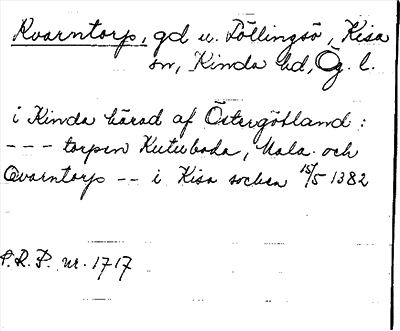 Kvarntorp, gd u. Föllingsö, Kisa
sn, Kinda hd, Ög. l.
i Kinda härad af Östergötland:
--- torpen Kutuboda, Mala och
Qvarntorp -- i Kisa socken 15/5 1382
P.R.P. nr. 1717